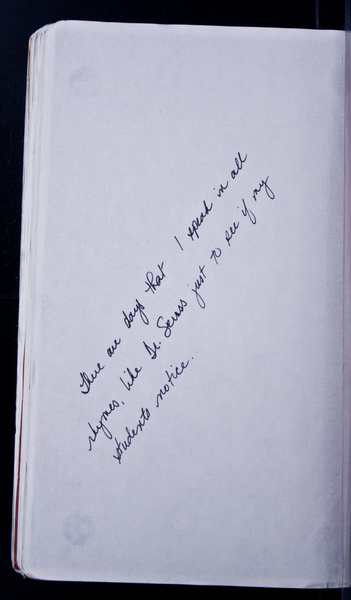 There are days that I speak in all
rhymes, like Dr. Seuss just to see if my
students notice.